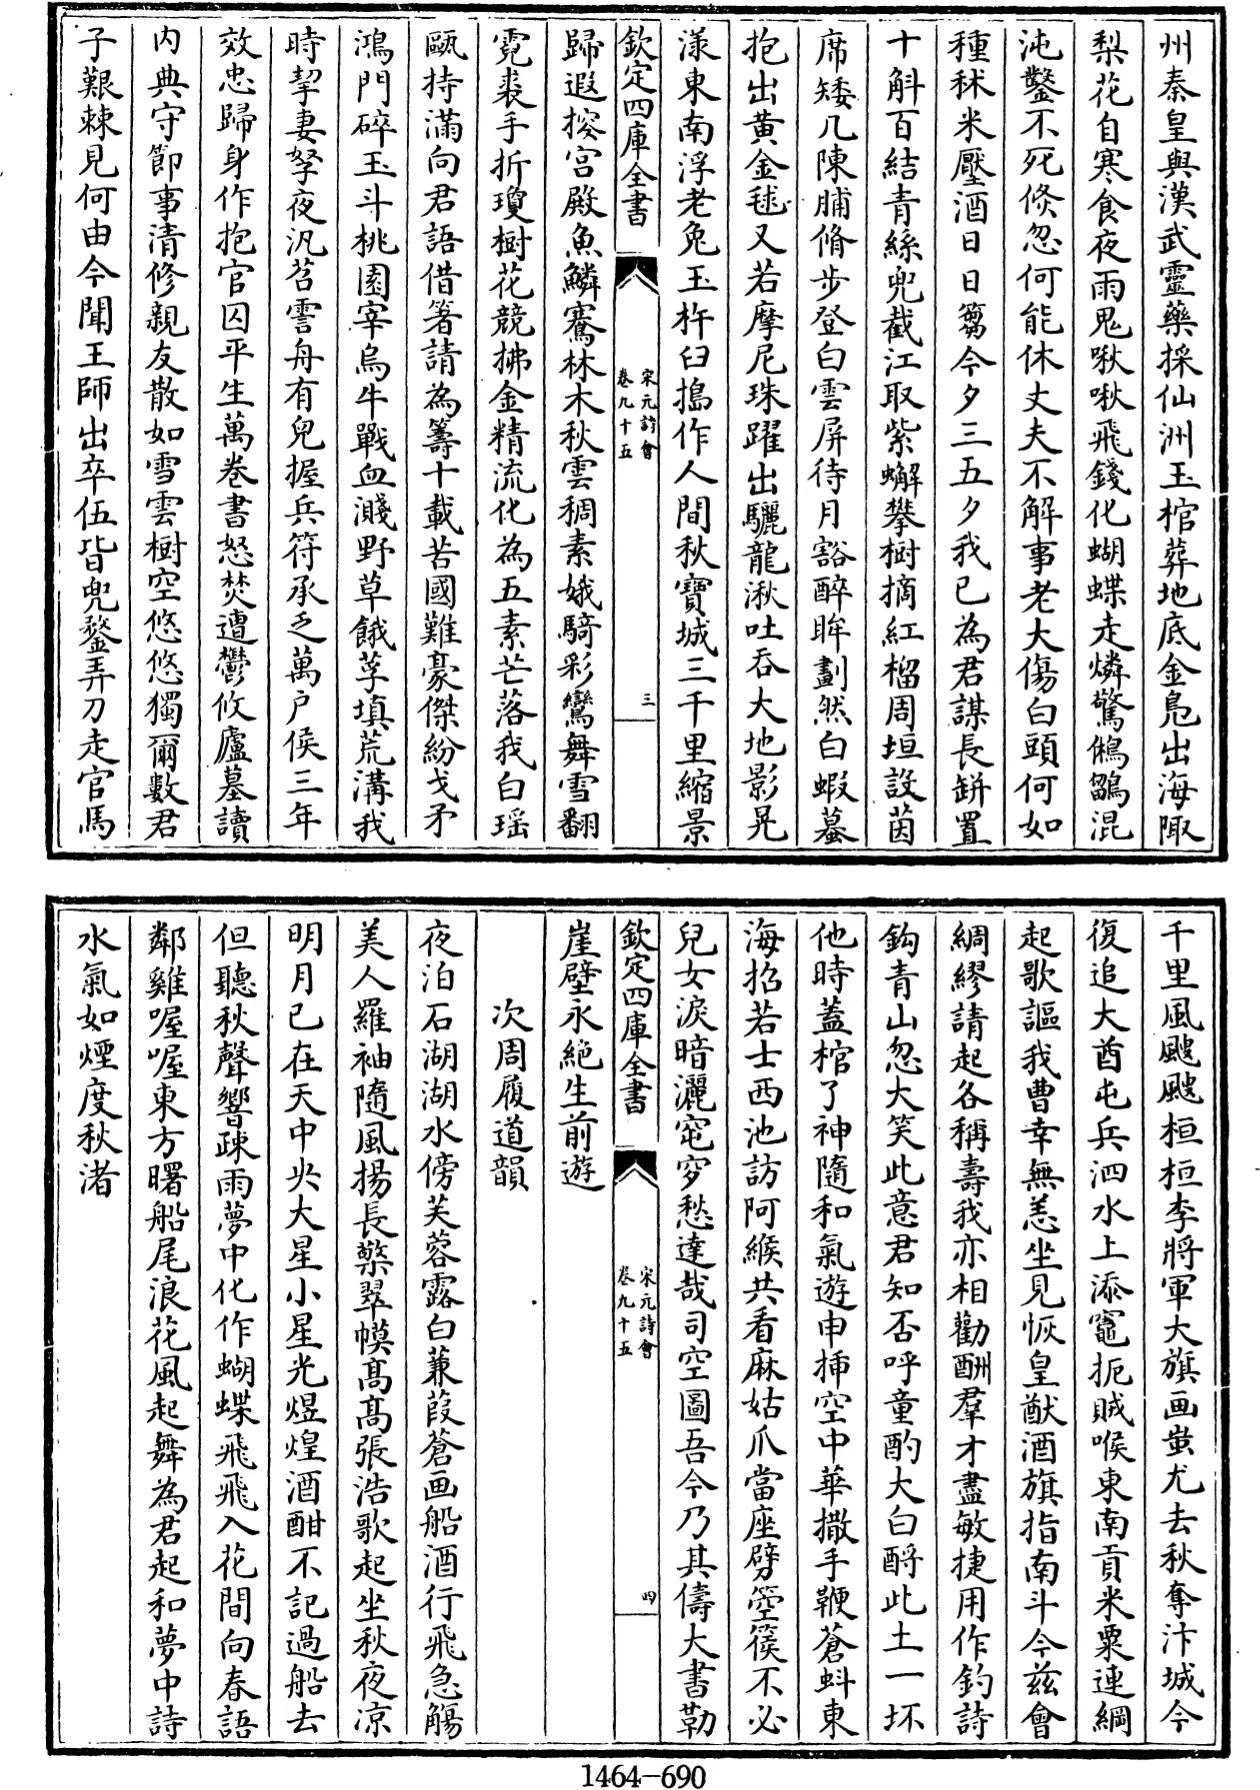 州秦皇與漢武靈藥採仙洲玉棺葬地底金鳬出海陬
梨花自寒食夜雨鬼啾啾飛錢化蝴蝶走燐驚鵂鶹混
沌鑿不死倏忽何能休丈夫不解事老大傷白頭何如
種秫米壓酒日日篘今夕三五夕我已為君謀長缾置
十斛百結青絲兜截江取紫蠏攀樹摘紅榴周垣設茵
席矮几陳脯脩步登白雲屏待月豁醉眸劃然白蝦蟇
抱出黄金毬又若摩尼珠躍出驪龍湫吐吞大地影晃
漾東南浮老兔玉杵臼搗作人間秋寶城三千里縮景
欽定四庫全書
宋元詩會
卷九十五
三
歸遐搜宮殿魚鱗騫林木秋雲稠素娥騎彩鸞舞雪翻
霓裘手折瓊樹花競拂金精流化為五素芒落我白瑶
甌持滿向君語借箸請為籌十載苦國難豪傑紛戈矛
鴻門碎玉斗桃園宰烏牛戰血濺野草餓莩填荒溝我
時挈妻孥夜汎苕霅舟有兒握兵符承乏萬户侯三年
效忠歸身作抱官囚平生萬卷書怒焚遭鬱攸廬墓讀
内典守節事清修親友散如雪雲樹空悠悠獨爾數君
子艱棘見何由今聞王師出卒伍皆兜鍪弄刀走官馬
千里風颼颼桓桓李將軍大旗画蚩尤去秋奪汴城今
復追大酋屯兵泗水上添竈扼賊喉東南貢米粟連綱
起歌謳我曹幸無恙坐見恢皇猷酒旗指南斗今兹會
綢繆請起各稱壽我亦相勸酬羣才盡敏捷用作釣詩
鈎青山忽大笑此意君知否呼童酌大白酹此土一坏
他時蓋棺了神隨和氣遊申揷空中華撒手鞭蒼虬東
海招若士西池訪阿緱共看麻姑爪當座劈箜篌不必
兒女淚暗灑窀穸愁達哉司空圖吾今乃其儔大書勒
欽定四庫全書
宋元詩會
卷九十五
四
崖壁永絶生前遊
次周履道韻
夜泊石湖湖水傍芙蓉露白蒹葭蒼画船酒行飛急觴
美人羅袖隨風揚長檠翠幙髙髙張浩歌起坐秋夜凉
明月已在天中央大星小星光煜煌酒酣不記過船去
但聽秋聲響疎雨夢中化作蝴蝶飛飛入花間向春語
鄰雞喔喔東方曙船尾浪花風起舞為君起和夢中詩
水氣如煙度秋渚
1464-690